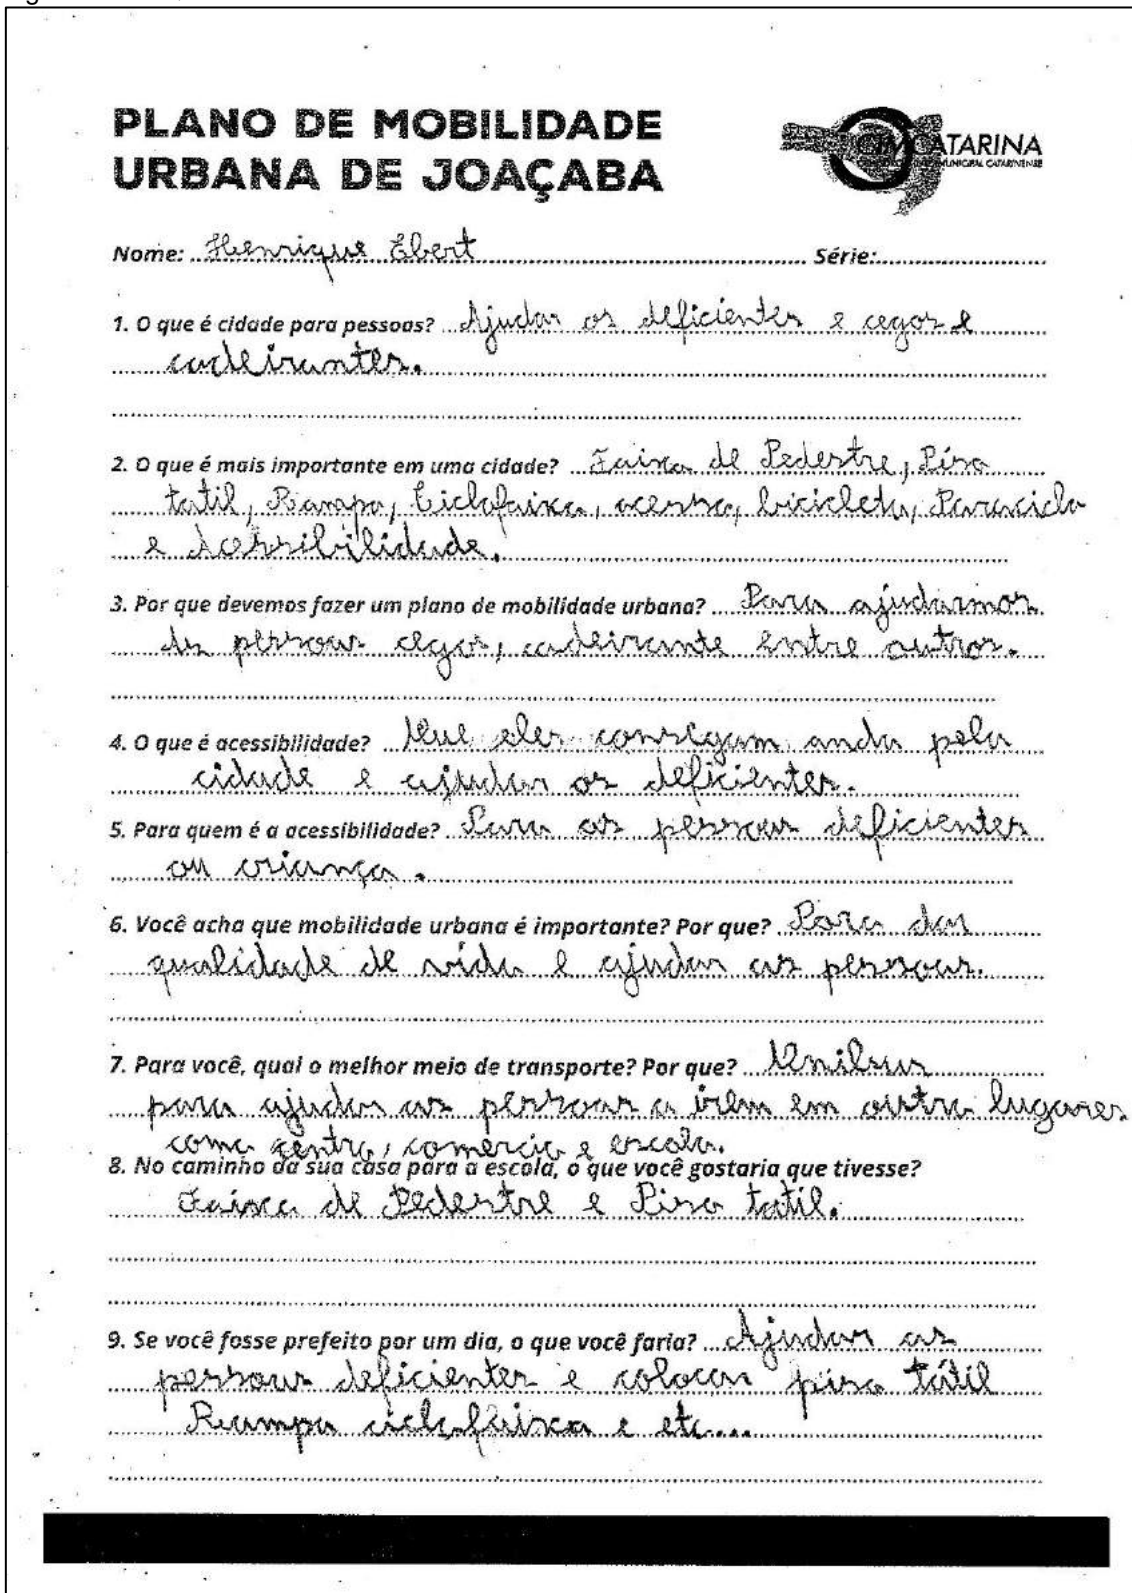 PLANO DE MOBILIDADE
URBANA DE JOAÇABA
CIMCATARINA
Nome: Henrique Ebert Série:
1. O que é cidade para pessoas? Ajudar os deficientes e cegos e
cadeirantes.
2. O que é mais importante em uma cidade? Faixa de Pedestre, Piso
tatil, Rampa, Ciclofaixa, acesso, bicicleta, Paraciclo
e Acessibilidade.
3. Por que devemos fazer um plano de mobilidade urbana? Para ajudarmos
as pessoas cegas, cadeirante entre outros.
4. O que é acessibilidade? Que eles consigam anda pela
cidade e ajudar os deficientes.
5. Para quem é a acessibilidade? Para as pessoas deficientes
ou criança.
6. Você acha que mobilidade urbana é importante? Por que? Para dar
qualidade de vida e ajudar as pessoas.
7. Para você, qual o melhor meio de transporte? Por que? Onibus
para ajudar as pessoas a irem em outro lugares
como centro, comercio e escola.
8. No caminho da sua casa para a escola, o que você gostaria que tivesse?
Faixa de Pedestre e Piso tatil.
9. Se você fosse prefeito por um dia, o que você faria? Ajudar as
pessoas deficientes e colocar piso tátil
Rampa ciclofaixa e etc....